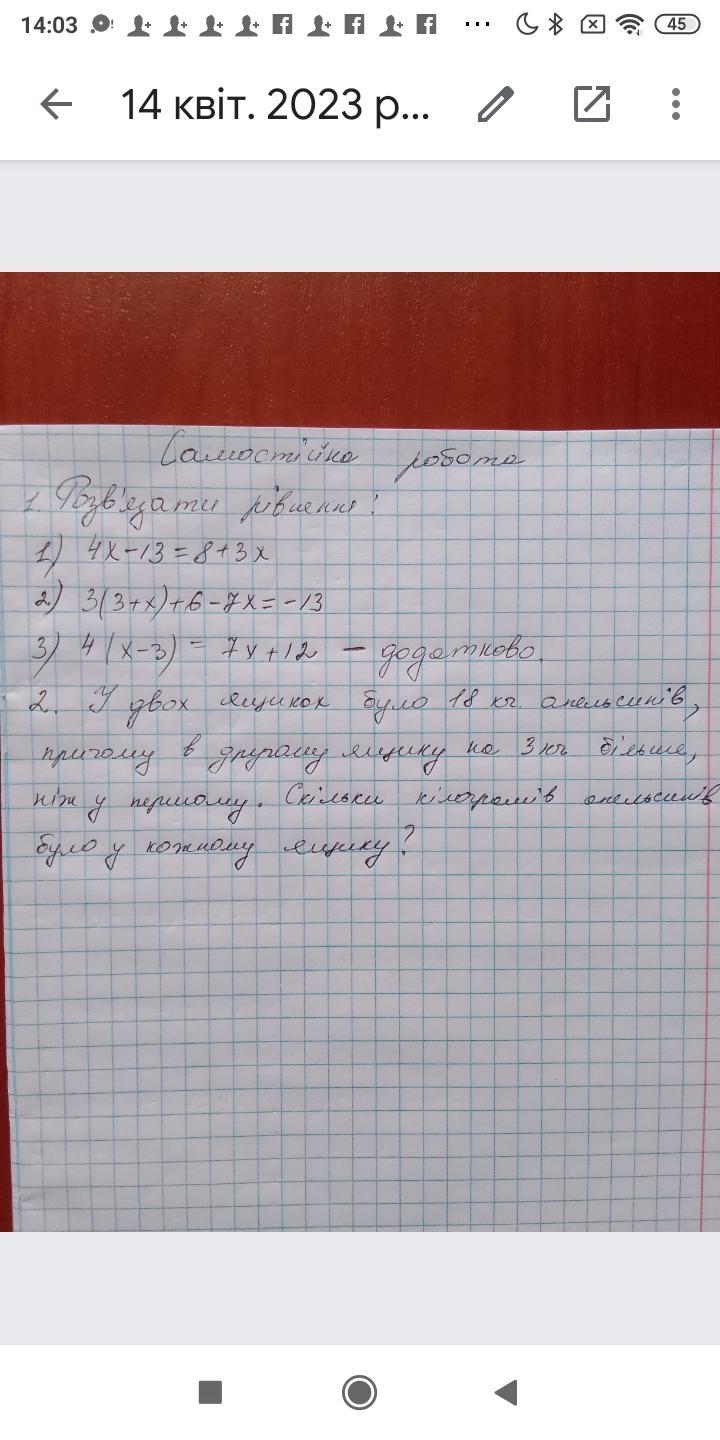 14:03
45
14 квіт. 2023 р...
Самостійна робота
1. Розв'язати рівнення:
1) 4x-13=8+3x
2) 3(3+x)+6-7x=-13
3) 4(x-3) = 7x+12 - додатково.
2. У двох ящиках було 18 кг. апельсинів,
причому в другому ящику на 3 кг більше,
ніж у першому. Скільки кілограмів апельсинів
було у кожному ящику?